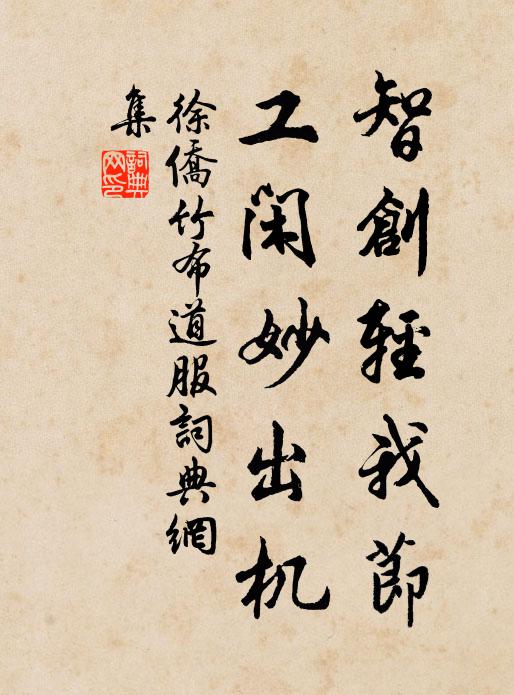 智創輕我節
工閑妙出机
徐僑竹布道服詞典網
集
詞典
网印